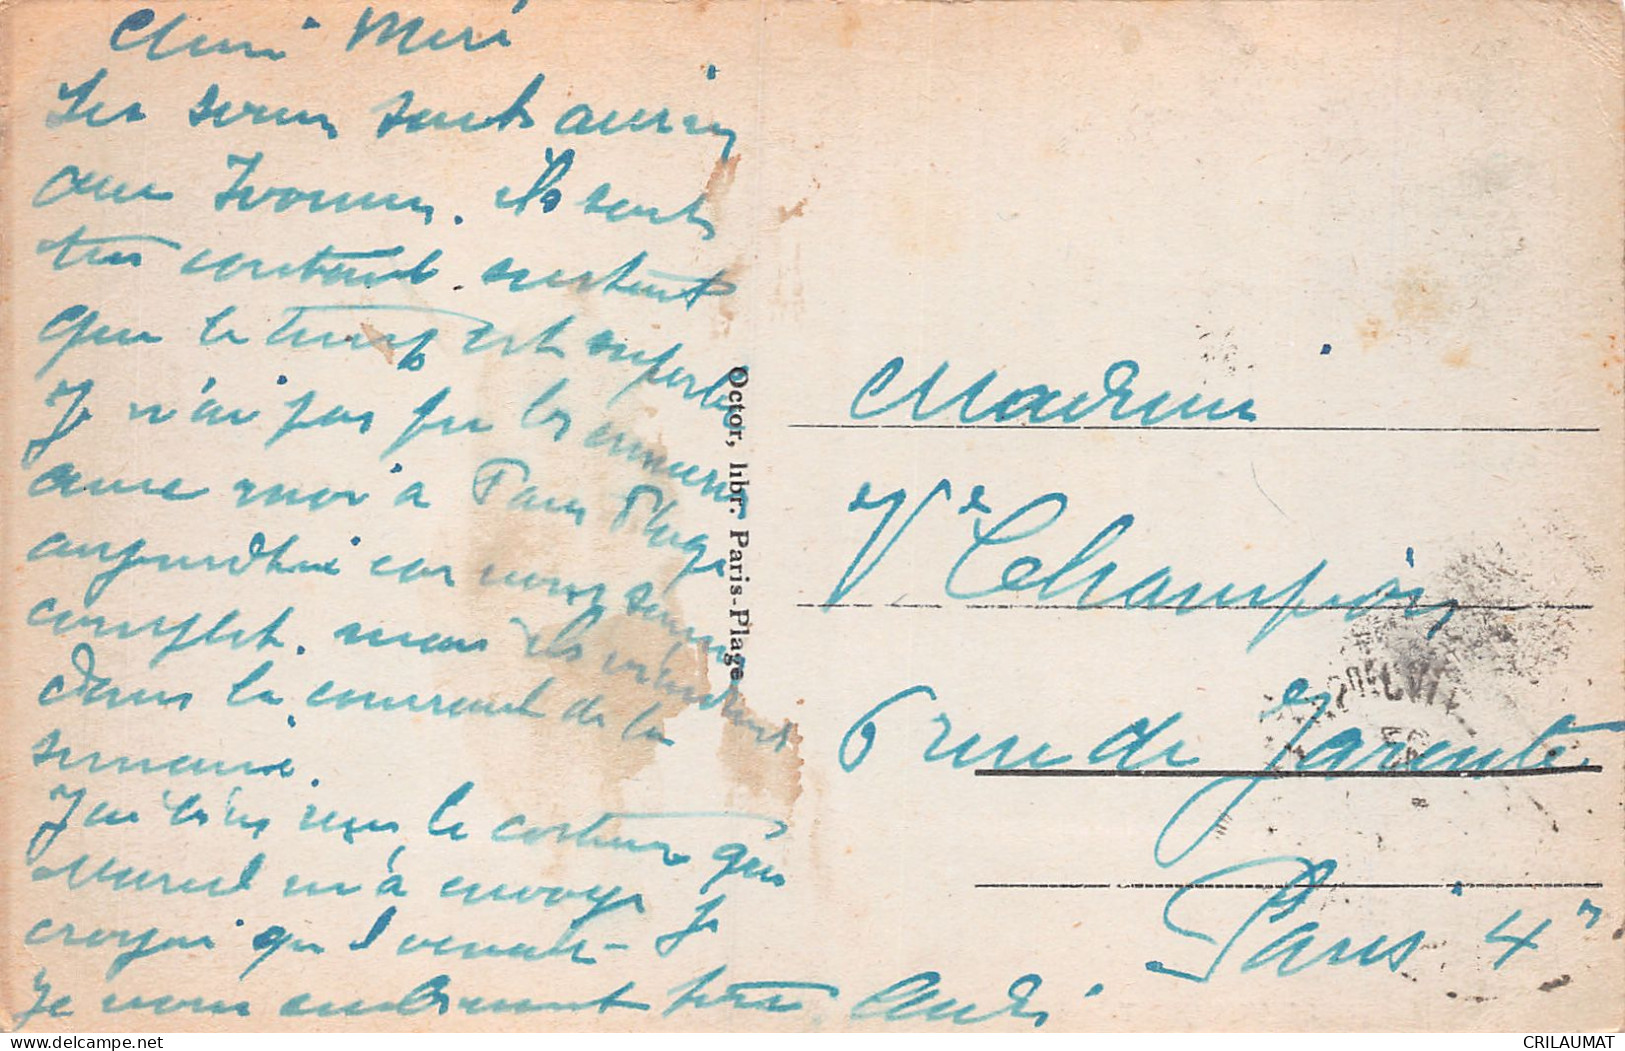 Cheri Meré
Les serins sont arrivés
avec Ivonne. ils sont
tres contents. surtout
que le temps est superbe
Je n'ai pas pu les emmener
avec moi à Paris Plage
aujourdhui car nous sommes
complet. mais ils viendront
dans le courant de la
semaine.
J'ai bien reçu le costume que
Marcel m'à envoye Je
croyai qu'l venait -
Je vous embrasse André
Octor, libr. Paris-Plage
Madame
Ve Champion
6 rue de Jarente
Paris 4e
CRILAUMAT